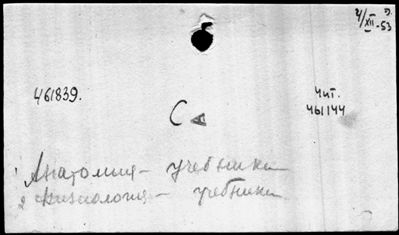 4/XII-53
461839.
Чит.
461144
С
1 Анатомия - учебники
2 Физиология - учебники